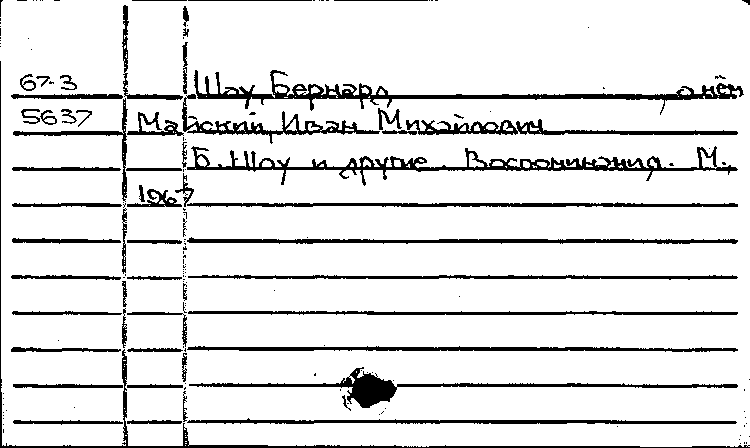 67-3 Шоу, Бернард, о нём
5637 Майский, Иван Михайлович
Б. Шоу и другие. Воспоминания. М.,
1967